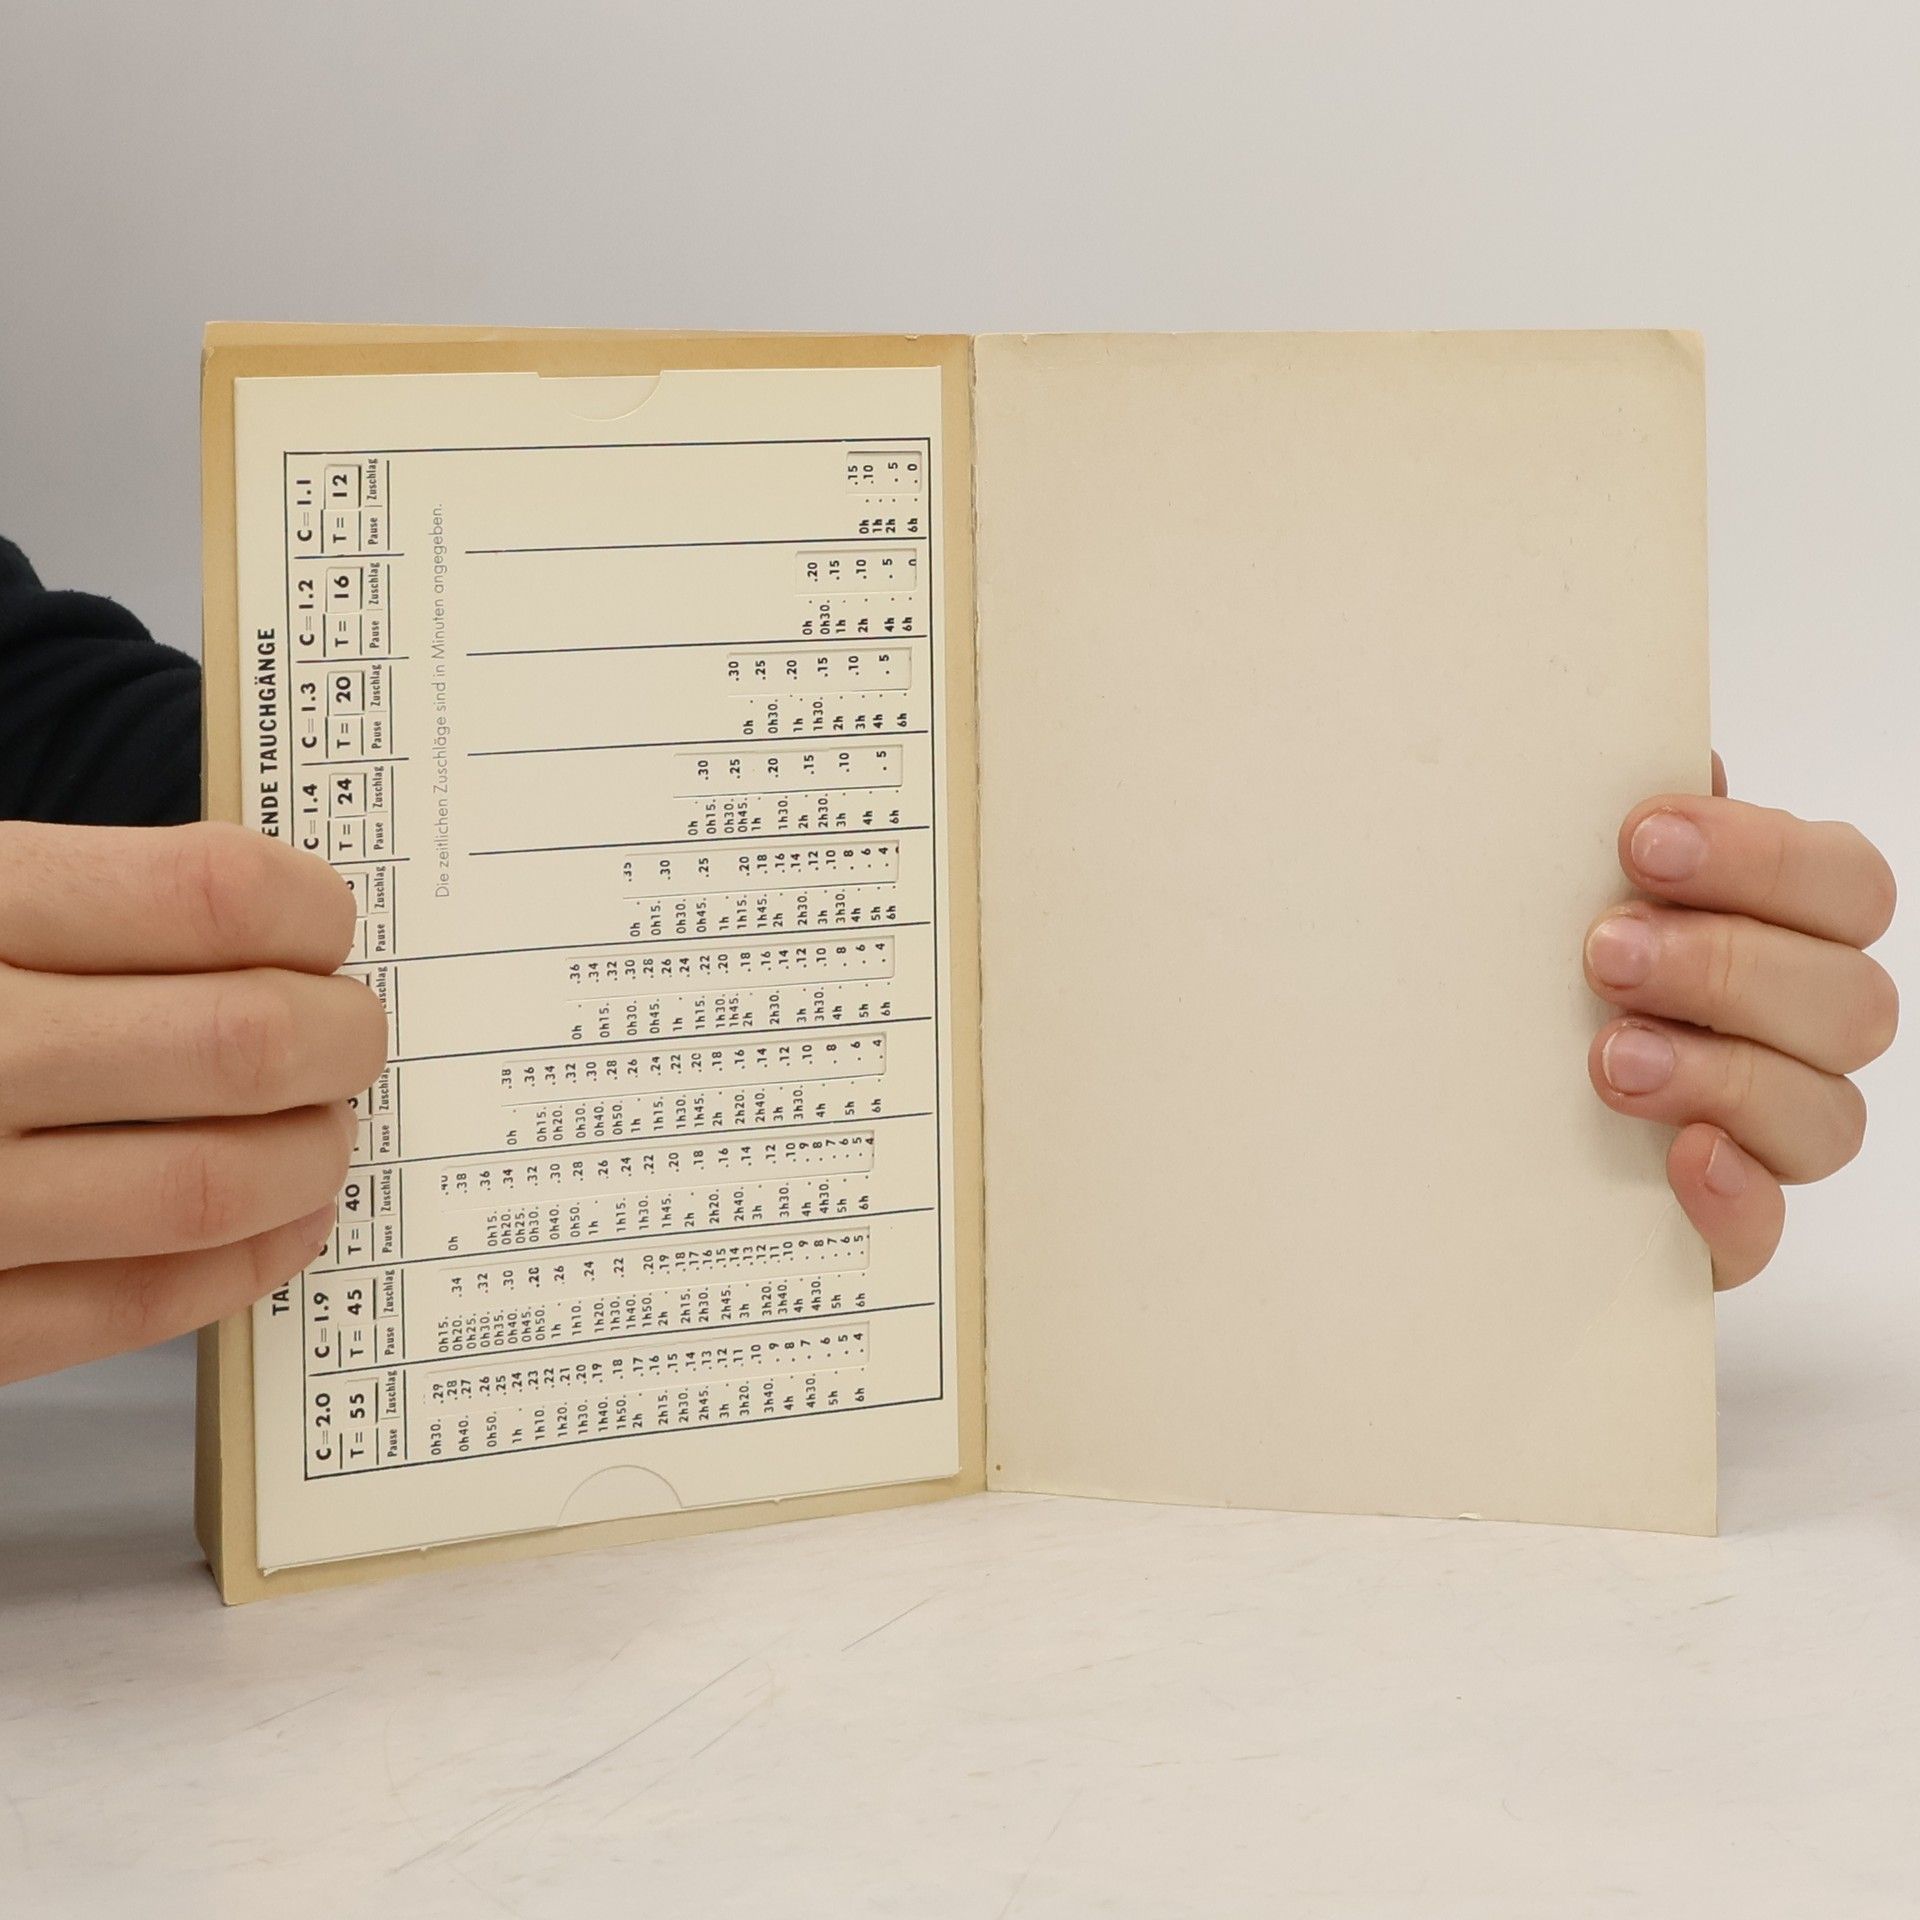 ENDE TAUCHGÄNGE
C=2.0 C=1.9 C=1.4 C=1.3 C=1.2 C=1.1
T= 55 T= 45 T= 40 T= 24 T= 20 T= 16 T= 12
Pause Zuschlag Pause Zuschlag Pause Zuschlag Pause Zuschlag Zuschlag Pause Zuschlag Pause Zuschlag Pause Zuschlag Pause Zuschlag Pause Zuschlag
Die zeitlichen Zuschläge sind in Minuten angegeben.
0h30. 0h40. 0h50. 1h . 1h10. 1h20. 1h30. 1h40. 1h50. 2h . 2h15. 2h30. 2h45. 3h . 3h20. 3h40. 4h . 4h30. 5h . 6h .
.29 .28 .27 .26 .25 .24 .23 .22 .21 .20 .19 .18 .17 .16 .15 .14 .13 .12 .11 .10 . 9 . 8 . 7 . 6 . 5 . 4
0h15. 0h20. 0h25. 0h30. 0h35. 0h40. 0h45. 0h50. 1h . 1h10. 1h20. 1h30. 1h40. 1h50. 2h . 2h15. 2h30. 2h45. 3h . 3h20. 3h40. 4h . 4h30. 5h . 6h .
.34 .32 .30 .28 .26 .24 .22 .20 .19 .18 .17 .16 .15 .14 .13 .12 .11 .10 . 9 . 8 . 7 . 6 . 5
0h 0h15. 0h20. 0h25. 0h30. 0h40. 0h50. 1h . 1h15. 1h30. 1h45. 2h . 2h20. 2h40. 3h . 3h30. 4h . 4h30. 5h . 6h .
.40 .38 .36 .34 .32 .30 .28 .26 .24 .22 .20 .18 .16 .14 .12 .10 . 9 . 8 . 7 . 6 . 5 . 4
0h . 0h15. 0h20. 0h30. 0h40. 0h50. 1h . 1h15. 1h30. 1h45. 2h . 2h20. 2h40. 3h . 3h30. 4h . 5h . 6h .
.38 .36 .34 .32 .30 .28 .26 .24 .22 .20 .18 .16 .14 .12 .10 . 8 . 6 . 4
0h . 0h15. 0h30. 0h45. 1h . 1h15. 1h30. 1h45. 2h . 2h30. 3h . 3h30. 4h . 5h . 6h .
.36 .34 .32 .30 .28 .26 .24 .22 .20 .18 .16 .14 .12 .10 . 8 . 6 . 4
0h . 0h15. 0h30. 0h45. 1h . 1h15. 1h45. 2h . 2h30. 3h . 3h30. 4h . 5h . 6h .
.35 .30 .25 .20 .18 .16 .14 .12 .10 . 8 . 6 . 4
0h . 0h15. 0h30. 0h45. 1h . 1h30. 2h . 2h30. 3h . 4h . 6h .
.30 .25 .20 .15 .10 . 5
0h . 0h30. 1h . 1h30. 2h . 3h . 4h . 6h .
.30 .25 .20 .15 .10 . 5
0h . 0h30. 1h . 2h . 4h . 6h .
.20 .15 .10 . 5 0
0h . 1h . 2h . 6h .
.15 .10 . 5 . 0